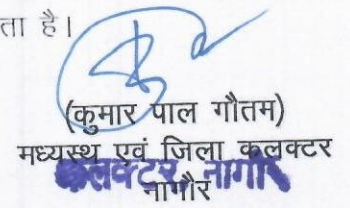 ता है।
(कुमार पाल गौतम)
मध्यस्थ एवं जिला कलक्टर
कलक्टर नागौर
नागौर